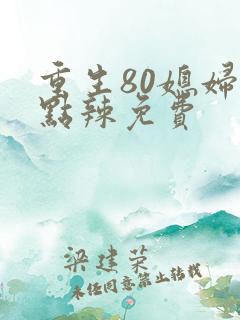 重生80媳婦
點辣免費
梁建荣
未经同意禁止转载